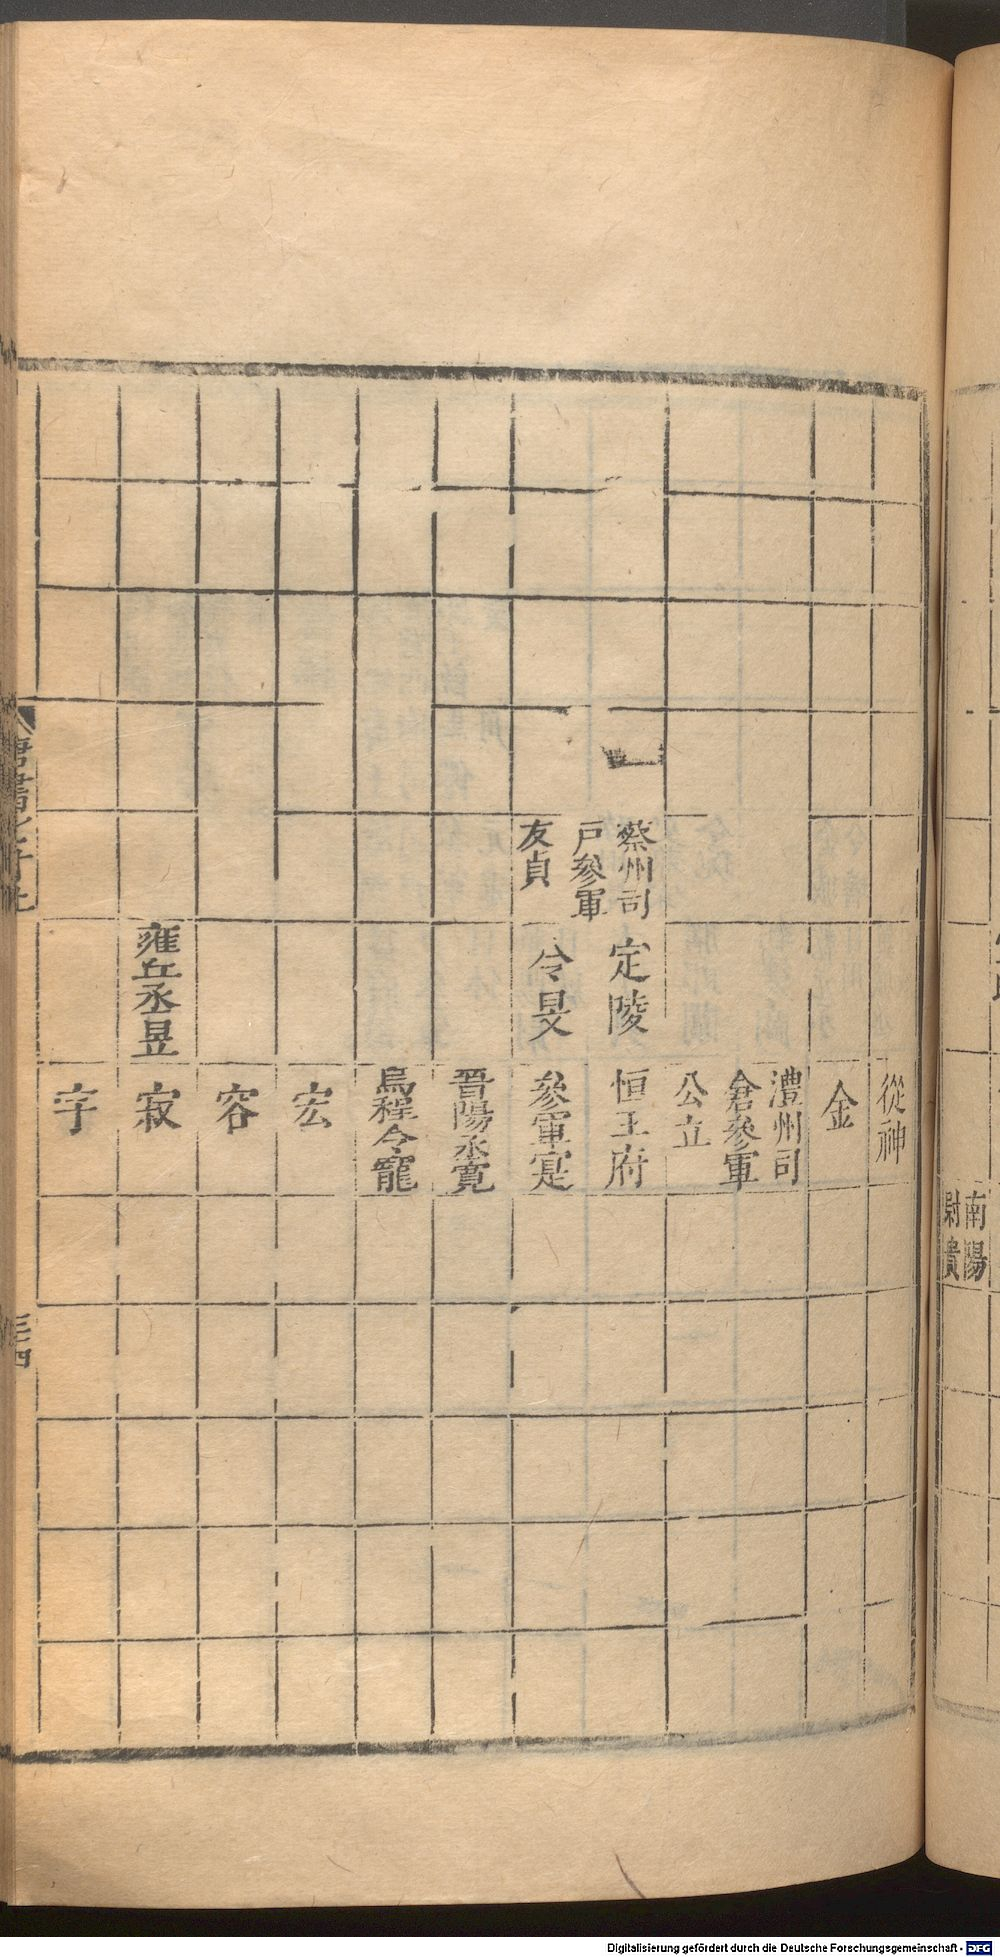 南陽
尉賁
從神
金
澧州司
倉參軍
公立
蔡州司
戶參軍
友貞
定陵
令旻
恒王府
參軍寔
晉陽丞寬
烏程令寵
宏
容
雍丘丞昱
寂
字
三四
Digitalisierung gefördert durch die Deutsche Forschungsgemeinschaft - DFG